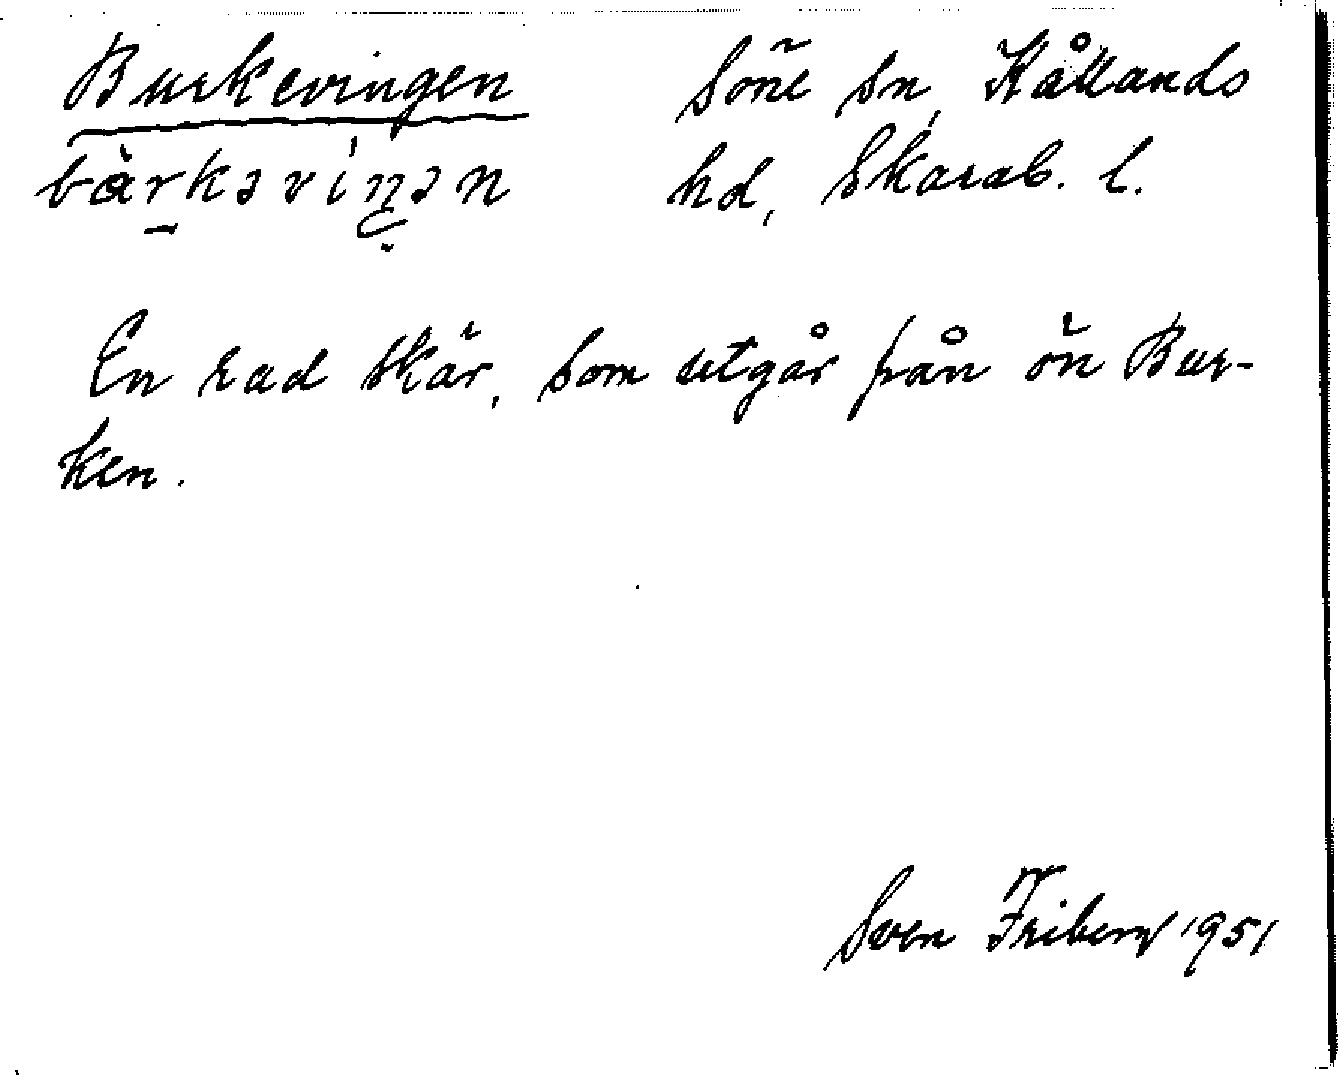 Burkevingen Söne sn, Kållands
bàrkəvi̇ŋən hd, Skarab. l.
En rad skär, som utgår från ön Bur-
ken.
Sven Friberg 1951